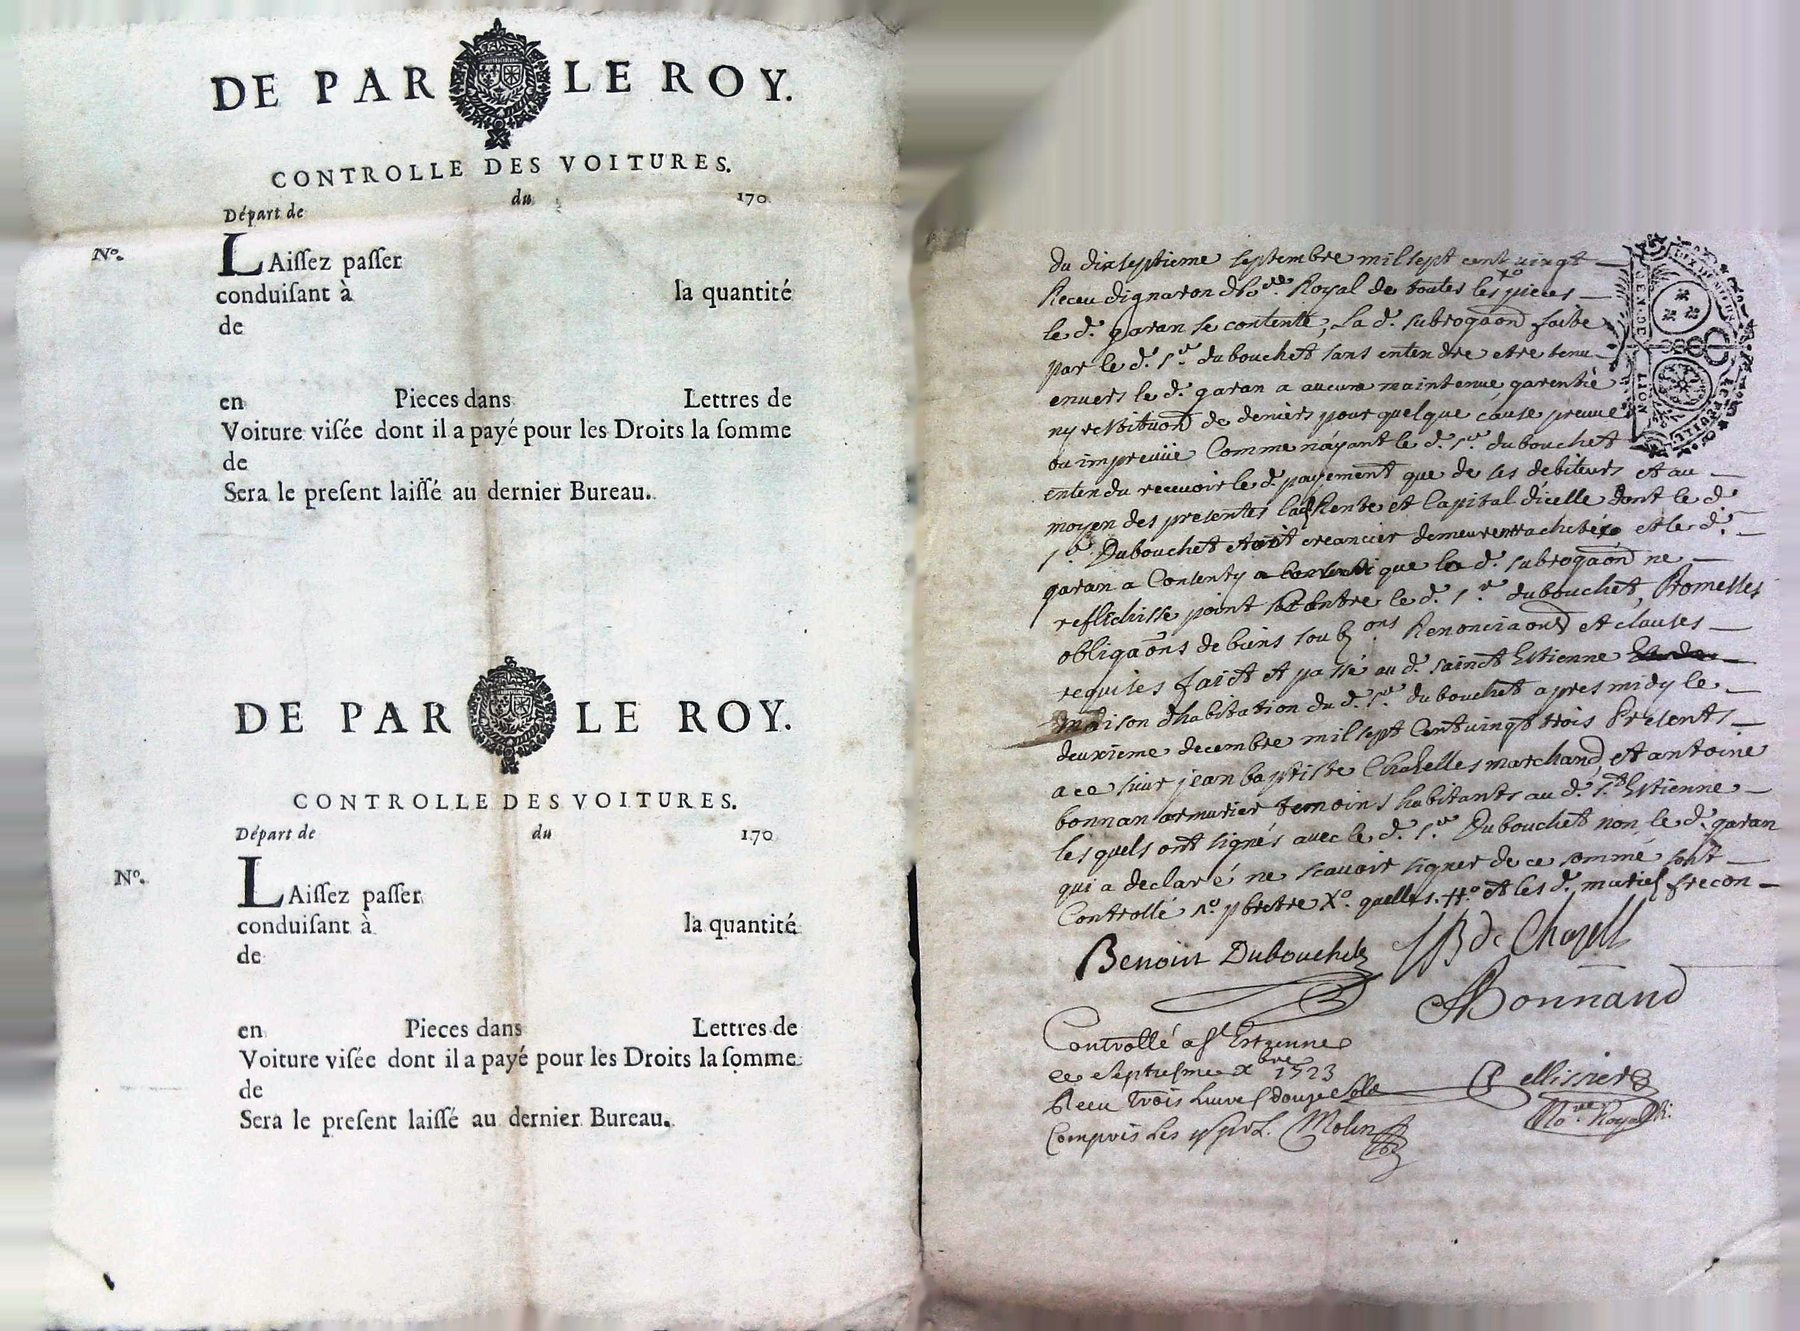 DE PAR LE ROY.
CONTROLLE DES VOITURES.
Départ de du 170
No. LAiſſez paſſer
conduiſant à la quantité
de
en Pieces dans Lettres de
Voiture viſée dont il a payé pour les Droits la ſomme
de
Sera le preſent laiſſé au dernier Bureau.
DE PAR LE ROY.
CONTROLLE DES VOITURES.
Départ de du 170
No. LAiſſez paſſer
conduiſant à la quantité
de
en Pieces dans Lettres de
Voiture viſée dont il a payé pour les Droits la ſomme
de
Sera le preſent laiſſé au dernier Bureau.
du dixseptieme septembre mil sept cent vingt
Receu Royal de toutes les pieces
le d. garan se contente, La d. subrogaon faite
par le d. sr. dubouchet sans entendre etre tenu
envers le d. garan a aucune maintenue garentie
ny restituon de deniers pour quelque cause preuue
ou impreuüe Comme n'ayant le d. sr. dubouchet
entendu receuoir le d. payement que de ses debiteurs et au
moyen des presentes Rente et Capital d'icelle dont le d.
sr. Dubouchet etoit creancier demeurent et le d.
garan a Consenty que la d. subrogaon ne
reflechisse point Contre le d. sr. dubouchet, Promesses
obligaons de biens soubons Renonciaons et clauses
requises faict et passé au d. sainct Estienne
maison d'habitation du d. sr. dubouchet apres midy le
deuxieme decembre mil sept Cent vingt trois Presents
a ce sieur jean baptiste Chazelles marchand, et antoine
bonnan armurier temoins habitants au d. st. Estienne
lesquels ont signés avec le d. sr. Dubouchet non le d. garan
qui a declaré ne scauoir signer de ce sommé soit
Controllé
Benoiit Dubouchet JB de Chazelle
Bonnand
Controllé a St Estienne
ce Septiesme Xbre 1723
Receu trois Liures douze sols Pellissier
Compris Les Molin Nore Royal
GEN. DE LION